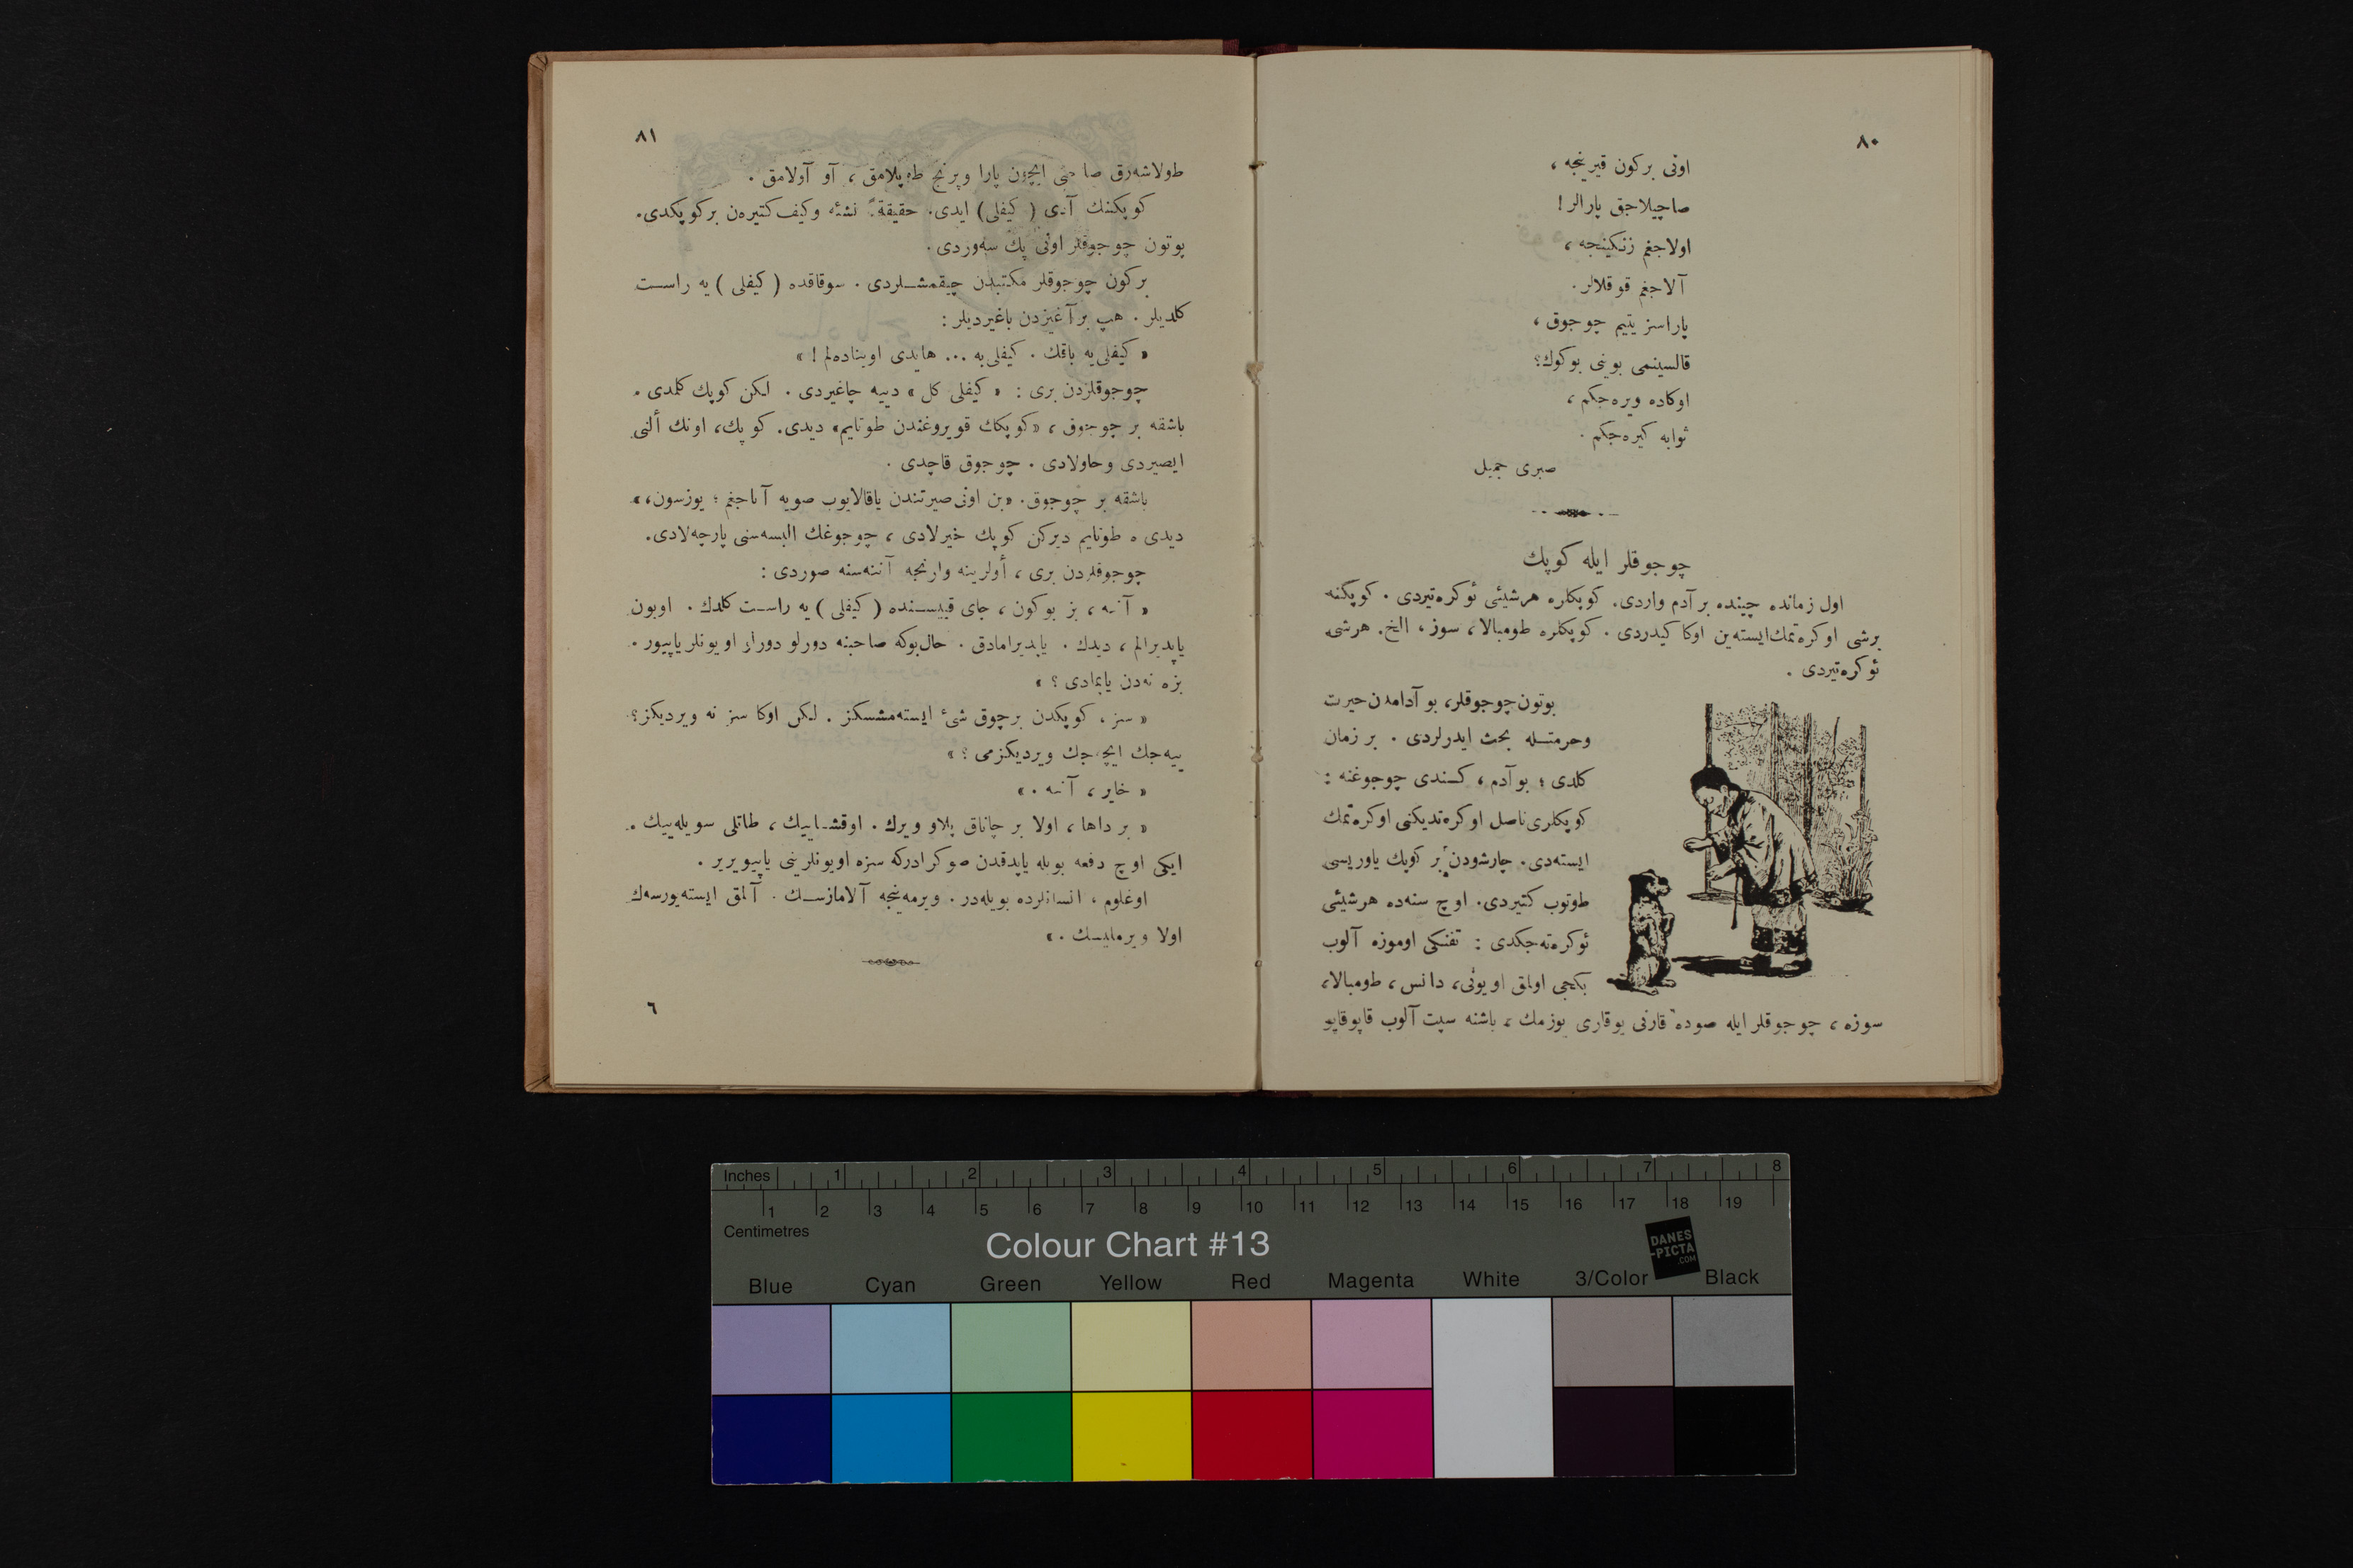 ٨٠
اونی بركون قیرینجه ،
صاچیلاجق پارالر !
اولاجغم زنكینجه ،
آلاجغم قوقلالر .
پاراسز یتیم چوجوق ،
قالسینمی بوینی بوكوك؟
اوكاده ویره‌جكم ،
ثوابه كیره‌جكم .
صبری جمیل
چوجوقلر ایله كوپك
اول زمانده چینده بر آدم واردی. كوپكلره هرشیئی ئوكره‌تیردی . كوپكنه
برشی اوكره‌تمك ایسته‌ین اوكا كیدردی . كوپكلره طومبالا، سوز ، الخ. هرشی
ئوكره‌تیردی .
بوتون چوجوقلر، بو آدامدن حیرت
وحرمتـله بحث ایدرلردی . بر زمان
كلدی ؛ بو آدم ، كـندی چوجوغنه :
كوپكلری ناصل اوكره‌تدیكنی اوكره‌تمك
ایسته‌دی. چارشودن بر كوپك یاوریسی
طوتوب كتیردی. اوچ سنه‌ده هرشیئی
ئوكره‌ته‌جكدی : تفنكی اوموزه آلوب
بكجی اولمق اویونی، دانس ، طومبالا،
سوزه ، چوجوقلر ایله صوده قارنی یوقاری یوزمك ، باشنه سپت آلوب قاپوقاپو
٨١
طولاشه‌رق صاحبی ایچون پارا وپرنج طوپلامق ، آو آولامق .
كوپكنك آدی ( كیفلی) ایدی. حقیقةً نشئه وكیف كتیره‌ن بركوپكدی.
بوتون چوجوقلر اونی پك سه‌وردی.
بركون چوجوقلر مكتبدن چیقمشـلردی . سوقاقده ( كیفلی ) یه راسـت
كلدیلر . هپ بر آغیزدن باغیردیلر :
« كیفلی‌یه باقك . كیفلی‌یه ... هایدی اویناده‌لم ! »
چوجوقلردن بری : « كیفلی كل » دییه چاغیردی . لكن كوپك كلمدی .
باشقه بر چوجوق ، «كوپكك قویروغندن طوتایم» دیدی. كوپك، اونك ألنی
ایصیردی وحاولادی . چوجوق قاچدی .
باشقه بر چوجوق. «بن اونی صیرتندن یاقالایوب صویه آتاجغم ؛ یوزسون،»
دیدی ه طوتایم دیركن كوپك خیرلادی ، چوجوغك البسه‌سنی پارچه‌لادی.
چوجوقلردن بری ، أولرینه وارنجه آننه‌سنه صوردی :
« آننه ، بز بوكون ، چای قییـسنده ( كیفلی ) یه راسـت كلدك . اویون
یاپدیرالم ، دیدك . یاپدیرامادق . حال‌بوكه صاحبنه دورلو دورلو اویونلر یاپییور .
بزه نه‌دن یاپمادی ؟ »
« سز ، كوپكدن برچوق شیٔ ایسته‌مشسكز . لكن اوكا سز نه ویردیكز؟
ییه‌جك ایچه‌جك ویردیكزمی ؟ »
« خایر ، آننه . »
« بر داها ، اولا بر چاناق پلاو ویرك . اوقشـایيك ، طاتلی سویله‌ییك .
ایكی اوچ دفعه بویله یاپدقدن صوكرادركه سزه اویونلرینی یاپیویریر .
اوغلوم ، انسانلرده بویله‌در . ویرمه‌ینجه آلامازسـك . آلمق ایسته‌یورسه‌ك
اولا ویرملیـسك . »
٦
Inches 1 2 3 4 5 6 7 8
1 2 3 4 5 6 7 8 9 10 11 12 13 14 15 16 17 18 19
Centimetres
Colour Chart #13
DANES
-PICTA
.COM
Blue Cyan Green Yellow Red Magenta White 3/Color Black